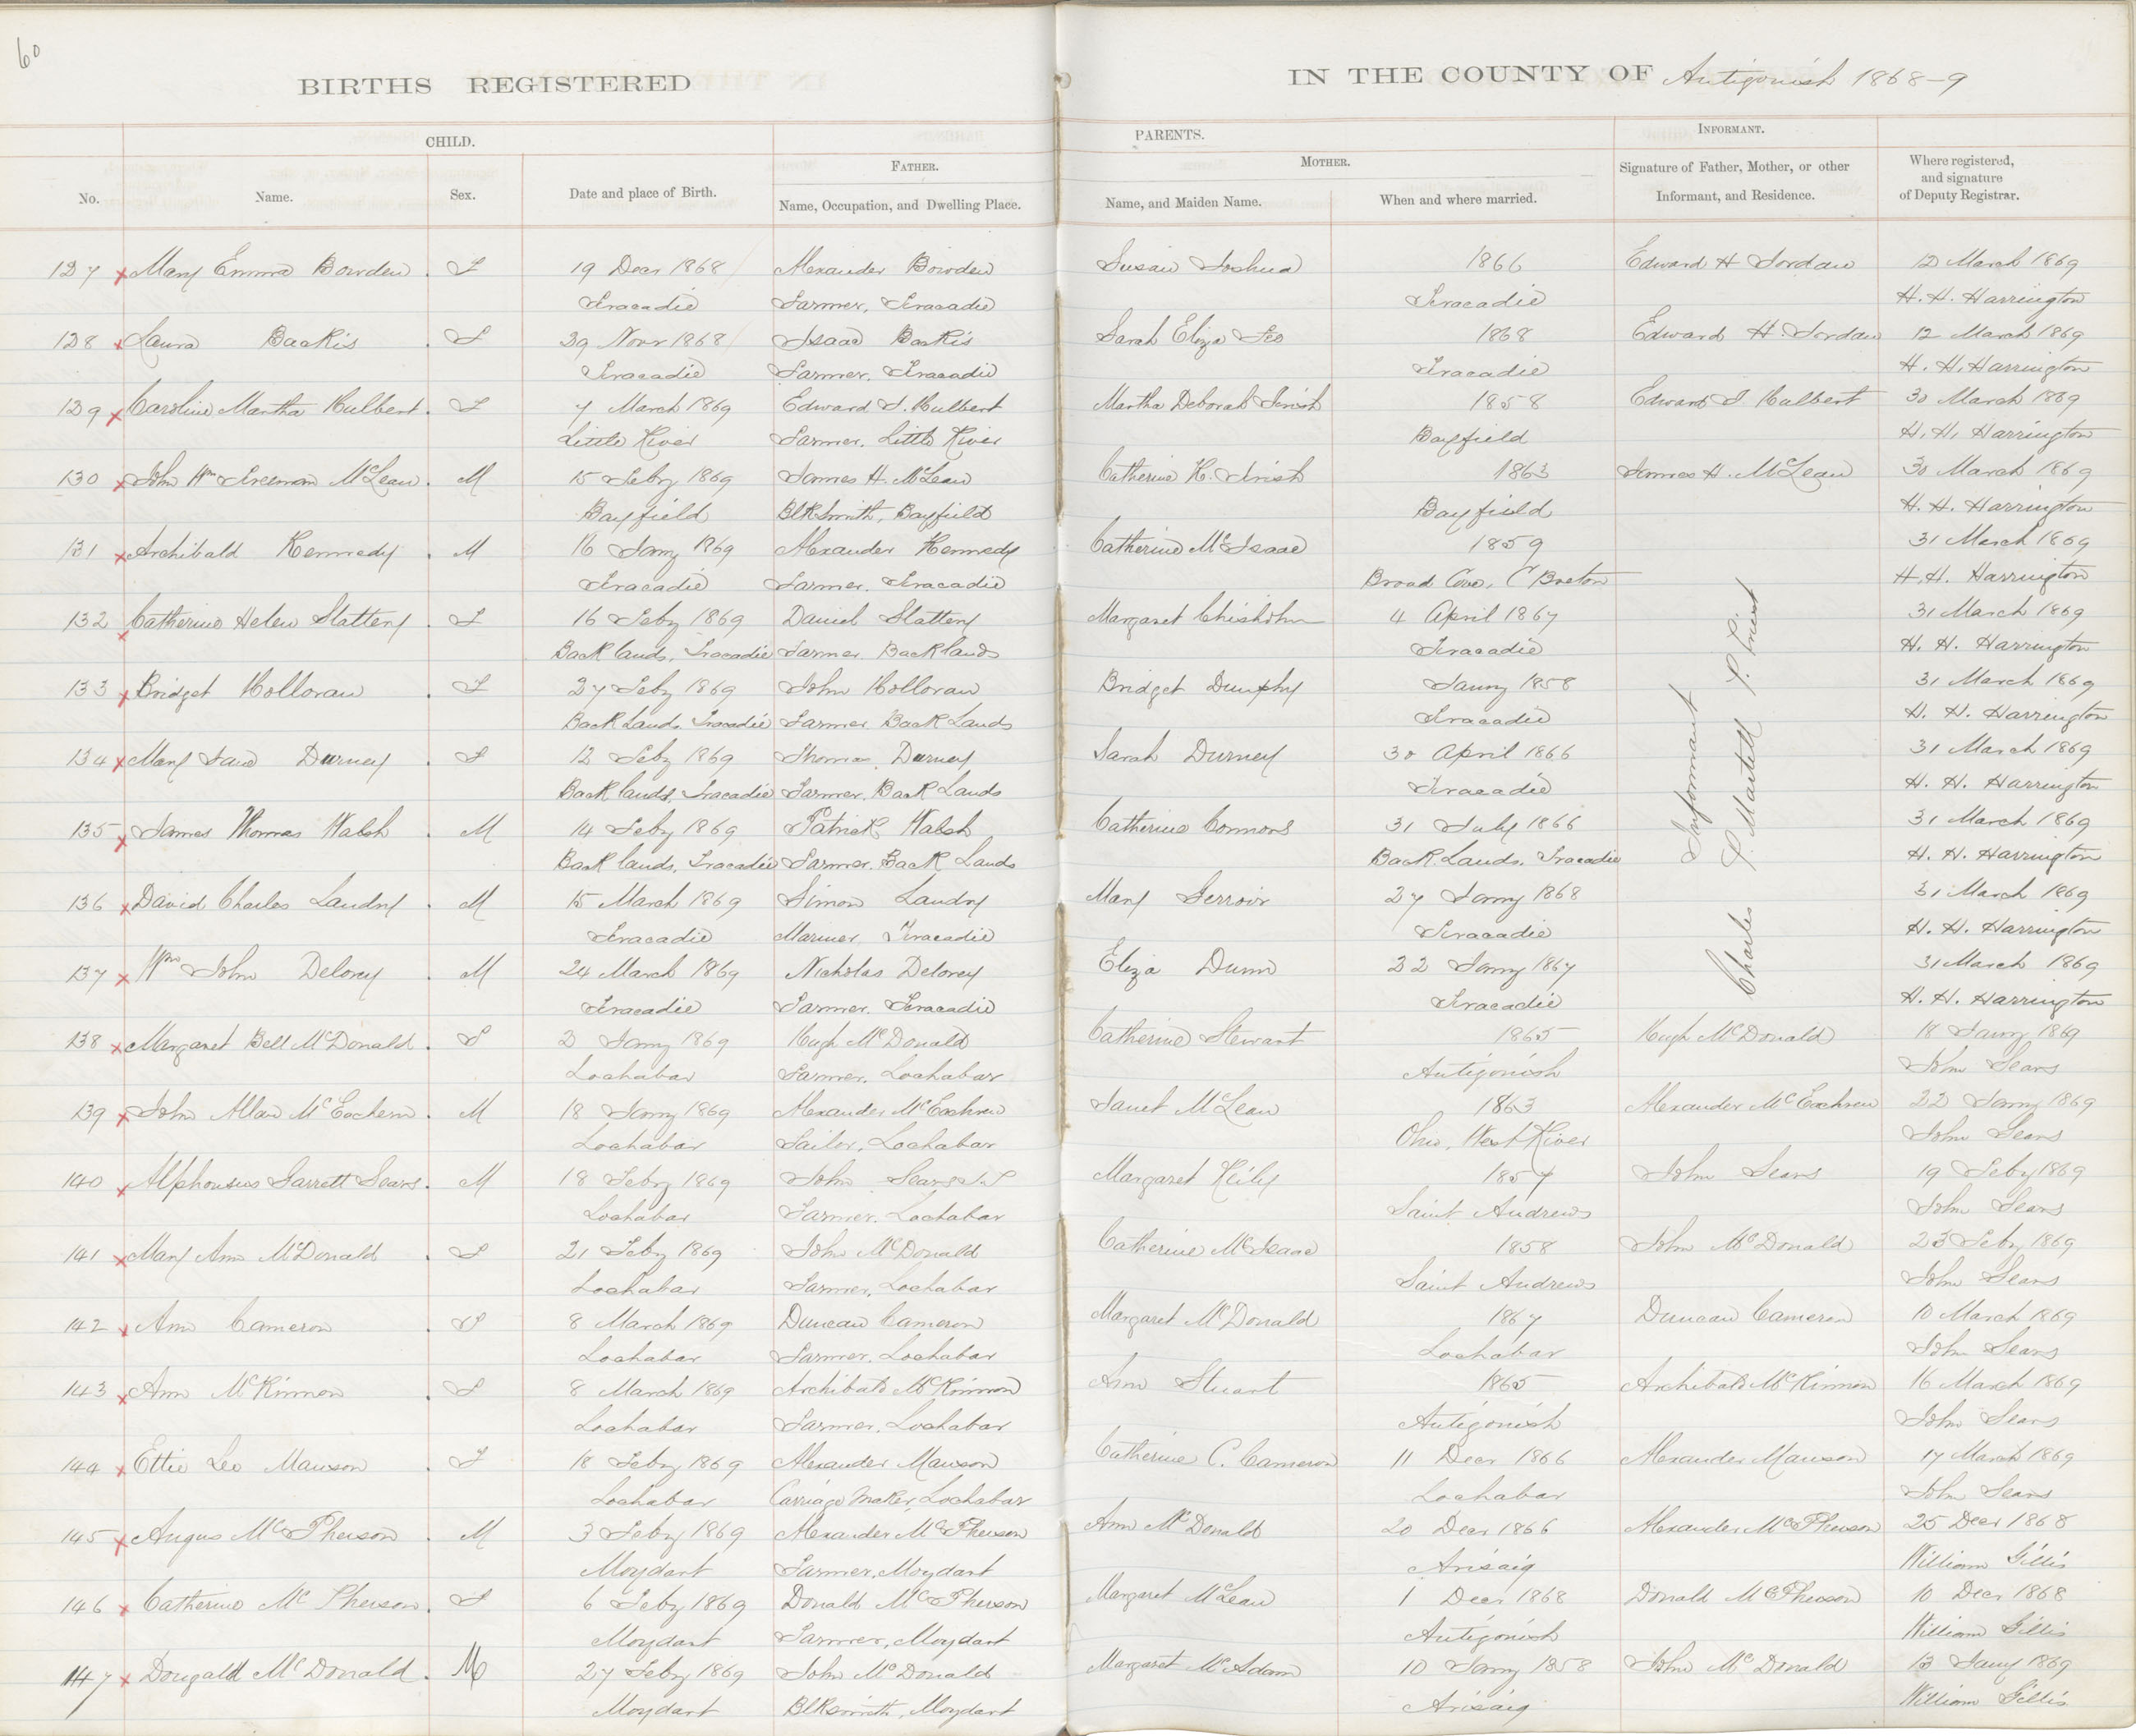 60
BIRTHS REGISTERED IN THE COUNTY OF Antigonish 1868-9
CHILD. PARENTS. INFORMANT.
FATHER. MOTHER.
No. Name. Sex. Date and place of Birth. Name, Occupation, and Dwelling Place. Name, and Maiden Name. When and where married. Signature of Father, Mother, or other Informant, and Residence. Where registered, and signature of Deputy Registrar.
127 x Mary Emma Bowden . F 19 Decr 1868 Alexander Bowden Susan Joshua 1866 Edward H Jordan 12 March 1869
Tracadie Farmer, Tracadie Tracadie H. H. Harrington
128 x Laura Backis . F 29 Novr 1868 Isaac Backis Sarah Eliza 1868 Edward H. Jordan 12 March 1869
Tracadie Farmer, Tracadie Tracadie H. H. Harrington
129 x Caroline Martha Hulbert . F 7 March 1869 Edward I. Hulbert Martha Deborah Irish 1858 Edward I. Hulbert 30 March 1869
Little River Farmer, Little River Bayfield H. H. Harrington
130 x John Wm Freeman McLean . M 15 Feby 1869 James H. McLean Catherine H. Irish 1863 James H. McLean 30 March 1869
Bayfield BlkSmith, Bayfield Bayfield H. H. Harrington
131 x Archibald Kennedy . M 16 Jany 1869 Alexander Kennedy Catherine McIsaac 1859 31 March 1869
Tracadie Farmer, Tracadie Broad Cove, C Breton H. H. Harrington
132 x Catherine Helen Slattery . F 16 Feby 1869 Daniel Slattery Margaret Chisholm 4 April 1867 31 March 1869
Back lands, Tracadie Farmer. Back lands Tracadie H. H. Harrington
133 x Bridget Holloran . F 27 Feby 1869 John Holloran Bridget Dunphy Jany 1858 31 March 1869
Back Lands, Tracadie Farmer. Back Lands Tracadie H. H. Harrington
134 x Mary Jane Durney . F 12 Feby 1869 Thomas Durney Sarah Durney 30 April 1866 31 March 1869
Back lands, Tracadie Farmer. Back Lands Tracadie H. H. Harrington
135 x James Thomas Walsh . M 14 Feby 1869 Patrick Walsh Catherine Connors 31 July 1866 31 March 1869
Back lands, Tracadie Farmer. Back Lands Back Lands, Tracadie H. H. Harrington
136 x David Charles Landry . M 15 March 1869 Simon Landry Mary Gerroir 27 Jany 1868 31 March 1869
Tracadie Mariner, Tracadie Tracadie H. H. Harrington
137 x Wm John Delorey . M 24 March 1869 Nicholas Delorey Eliza Dunn 22 Jany 1867 31 March 1869
Tracadie Farmer. Tracadie Tracadie H. H. Harrington
Informant
Charles P. Martell P. Priest
138 x Margaret Bell McDonald . F 2 Jany 1869 Hugh McDonald Catherine Stewart 1865 Hugh McDonald 18 Jany 1869
Lochabar Farmer, Lochabar Antigonish John Sears
139 x John Allan McEachern . M 18 Jany 1869 Alexander McEachren Janet McLean 1863 Alexander McEachren 22 Jany 1869
Lochabar Tailor, Lochabar Ohio, West River John Sears
140 x Alphonsus Garrett Sears . M 18 Feby 1869 John Sears Margaret Keily 1857 John Sears 19 Feby 1869
Lochabar Farmer. Lochabar Saint Andrews John Sears
141 x Mary Ann McDonald . F 21 Feby 1869 John McDonald Catherine McIsaac 1858 John McDonald 23 Feby 1869
Lochabar Farmer, Lochabar Saint Andrews John Sears
142 x Ann Cameron . F 8 March 1869 Duncan Cameron Margaret McDonald 1867 Duncan Cameron 10 March 1869
Lochabar Farmer. Lochabar Lochabar John Sears
143 x Ann McKinnon . F 8 March 1869 Archibald McKinnon Ann Stuart 1865 Archibald McKinnon 16 March 1869
Lochabar Farmer, Lochabar Antigonish John Sears
144 x Ettie Leo Mawson . F 18 Feby 1869 Alexander Mawson Catherine C. Cameron 11 Decr 1866 Alexander Mawson 17 March 1869
Lochabar Carriage Maker, Lochabar Lochabar John Sears
145 x Angus McPherson . M 3 Feby 1869 Alexander McPherson Ann McDonald 20 Decr 1866 Alexander McPherson 25 Decr 1868
Moydart Farmer, Moydart Arisaig William Gillis
146 x Catherine McPherson . F 6 Feby 1869 Donald McPherson Margaret McLean 1 Decr 1868 Donald McPherson 10 Decr 1868
Moydart Farmer, Moydart Antigonish William Gillis
147 x Dougald McDonald . M 27 Feby 1869 John McDonald Margaret McAdam 10 Jany 1858 John McDonald 13 Jany 1869
Moydart Blksmith, Moydart Arisaig William Gillis